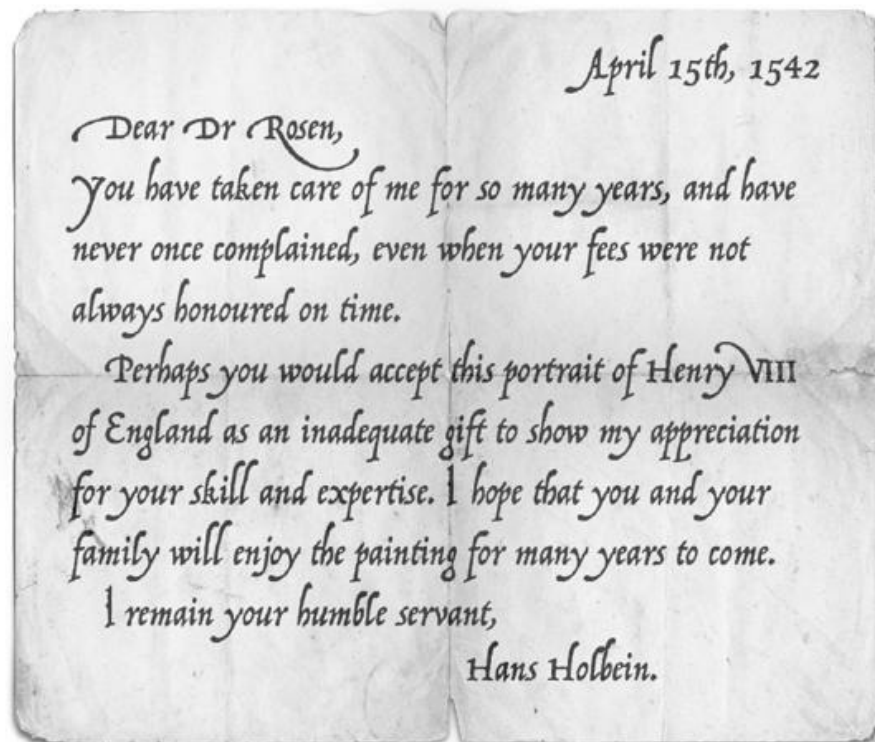 April 15th, 1542
Dear Dr Rosen,
You have taken care of me for so many years, and have
never once complained, even when your fees were not
always honoured on time.
Perhaps you would accept this portrait of Henry VIII
of England as an inadequate gift to show my appreciation
for your skill and expertise. I hope that you and your
family will enjoy the painting for many years to come.
I remain your humble servant,
Hans Holbein.